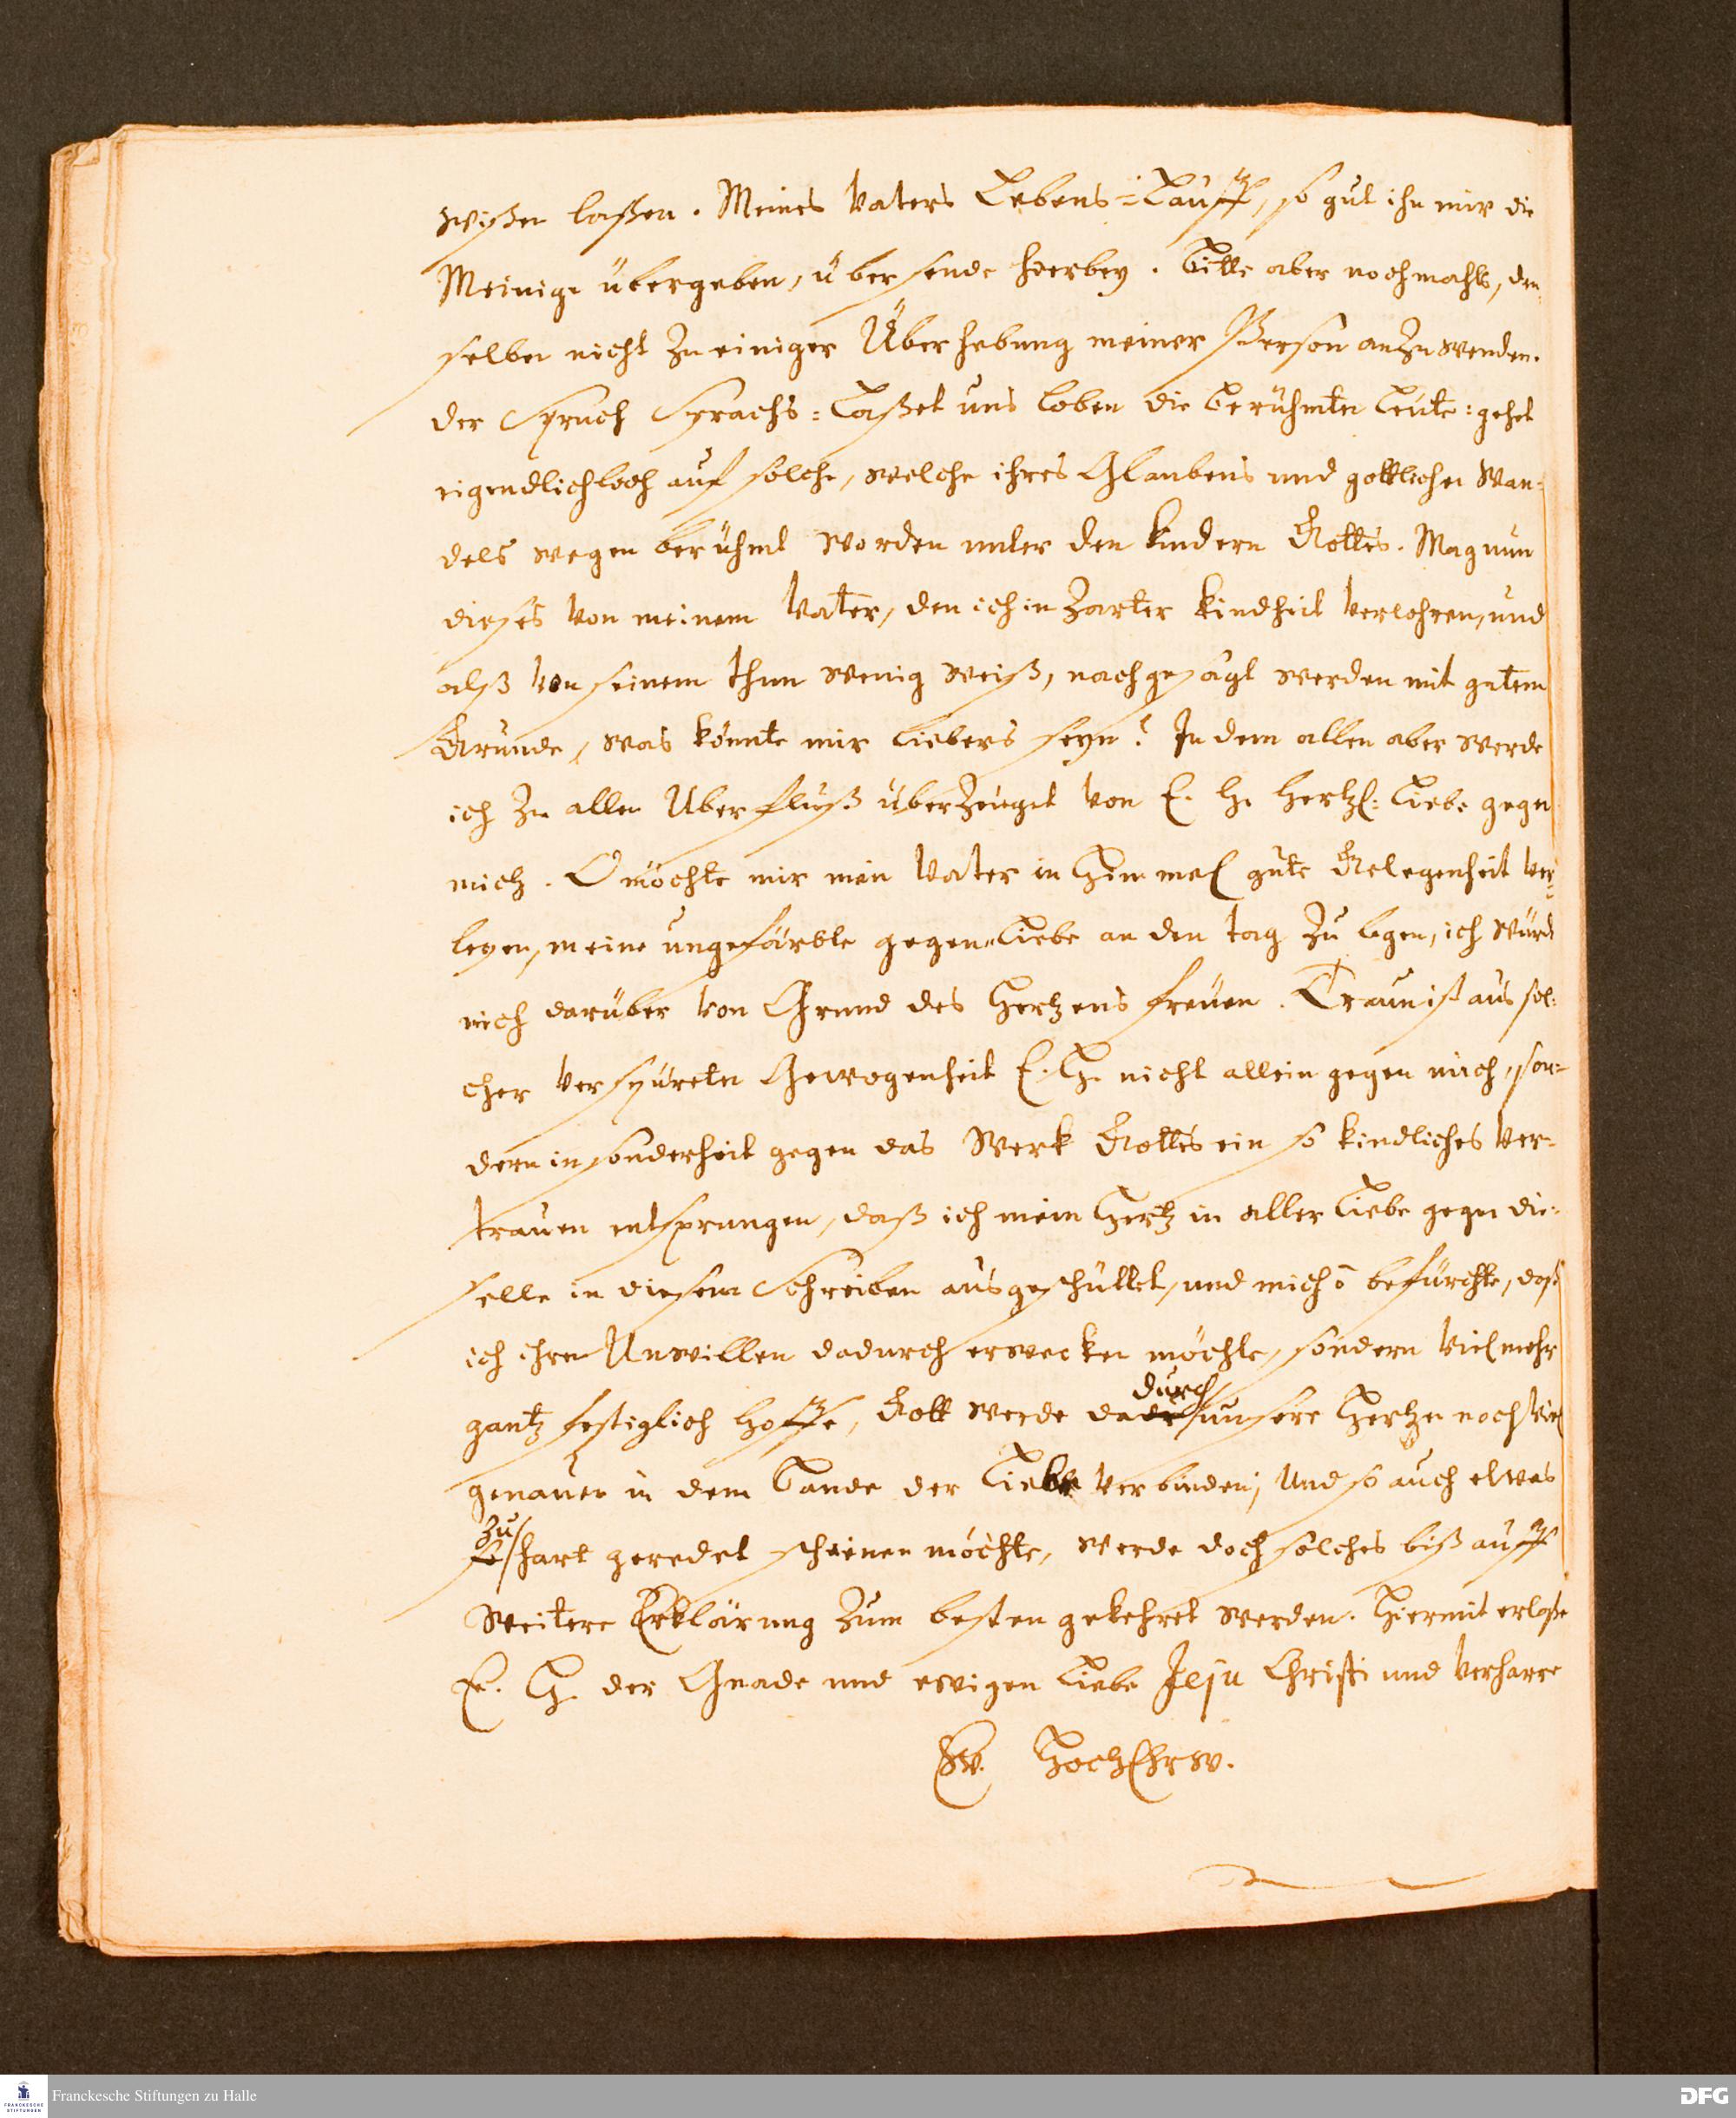 wißen laßen. Meines Vaters Lebens=Lauff, so gut ihn mir die
Meinige übergeben, übersende hierbey. Bitte aber nochmahls, den=
selben nicht zu einiger Überhebung meiner Person anzuwenden.
der Spruch Syrachs: Laßet uns loben die berühmten Leute: gehet
eigendlich auf solche, welche ihres Glaubens und gottlichen Wan=
dels wegen berühmt worden unter den kindern Gottes. Mag nun
dieses von meinem Vater, den ich in zarter kindheit verlohren, und
alß von seinem thun wenig weiß, nachgesagt werden mit gutem
Grunde, was könnte mir liebers seyn? In dem allen aber werde
ich zu allen Überfluß überzeuget von E. H. hertzl: Liebe gegen
mich. O möchte mir mein Vater in Himmel gute Gelegenheit ver=
leyen, meine ungefärbte gegen=Liebe an den tag zu legen, ich würde
mich darüber von Grund des Hertzens freuen. Traun ist aus sol=
cher verspüreten Gewogenheit E. H. nicht allein gegen mich, son=
dern insonderheit gegen das Werk Gottes ein so kindliches Ver=
trauen entsprungen, daß ich mein Hertz in aller Liebe gegen die=
selbe in diesem Schreiben ausgeschüttet, und mich õ befürchte, daß
ich ihren Unwillen dadurch erwecken möchte, sondern vielmehr
gantz festiglich hoffe, Gott werde da durch unsere Hertzen noch viel
genauer in dem Bande der Liebe verbinden; Und so auch etwas
zu hart geredet scheinen möchte, werde doch solches biß auff
weitere Erklärung zum besten gekehret werden. Hiermit erlaße
E. H. der Gnade und ewigen Liebe Jesu Christi und verharre
Ew. HochEhrw.
Franckesche Stiftungen zu Halle
DFG